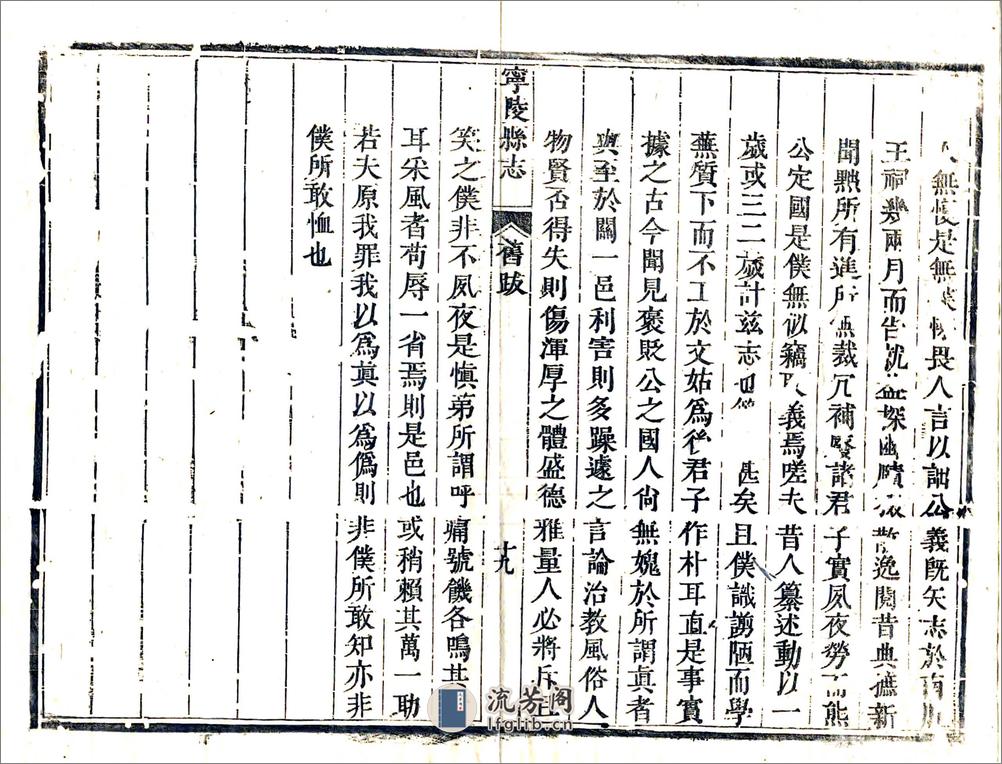 無愧是無 畏人言以詘公義旣矢志於
王祠幾兩月而告 探幽 散逸閱昔典摭新
聞㸃所有進所無裁冗補 諸君子實夙夜勞 能
公定國是僕無似竊 義焉嗟夫昔人纂述動以一
歲或三二歲計玆志也 甚矣且僕識謭陋而學
蕪質下而不工於文姑爲後君子作朴耳直是事實
據之古今聞見褒貶公之國人尙無媿於所謂眞者
與至於關一邑利害則多躁遽之言論治敎風俗人
物賢否得失則傷渾厚之體盛德雅量人必將斥且
寧陵縣志
舊跋
十九
笑之僕非不夙夜是愼第所謂呼痛號饑各鳴其
耳采風者苟辱一省焉則是邑也或稍賴其萬一助
若夫原我罪我以爲眞以爲僞則非僕所敢知亦非
僕所敢恤也
流芳阁
lfglib.cn